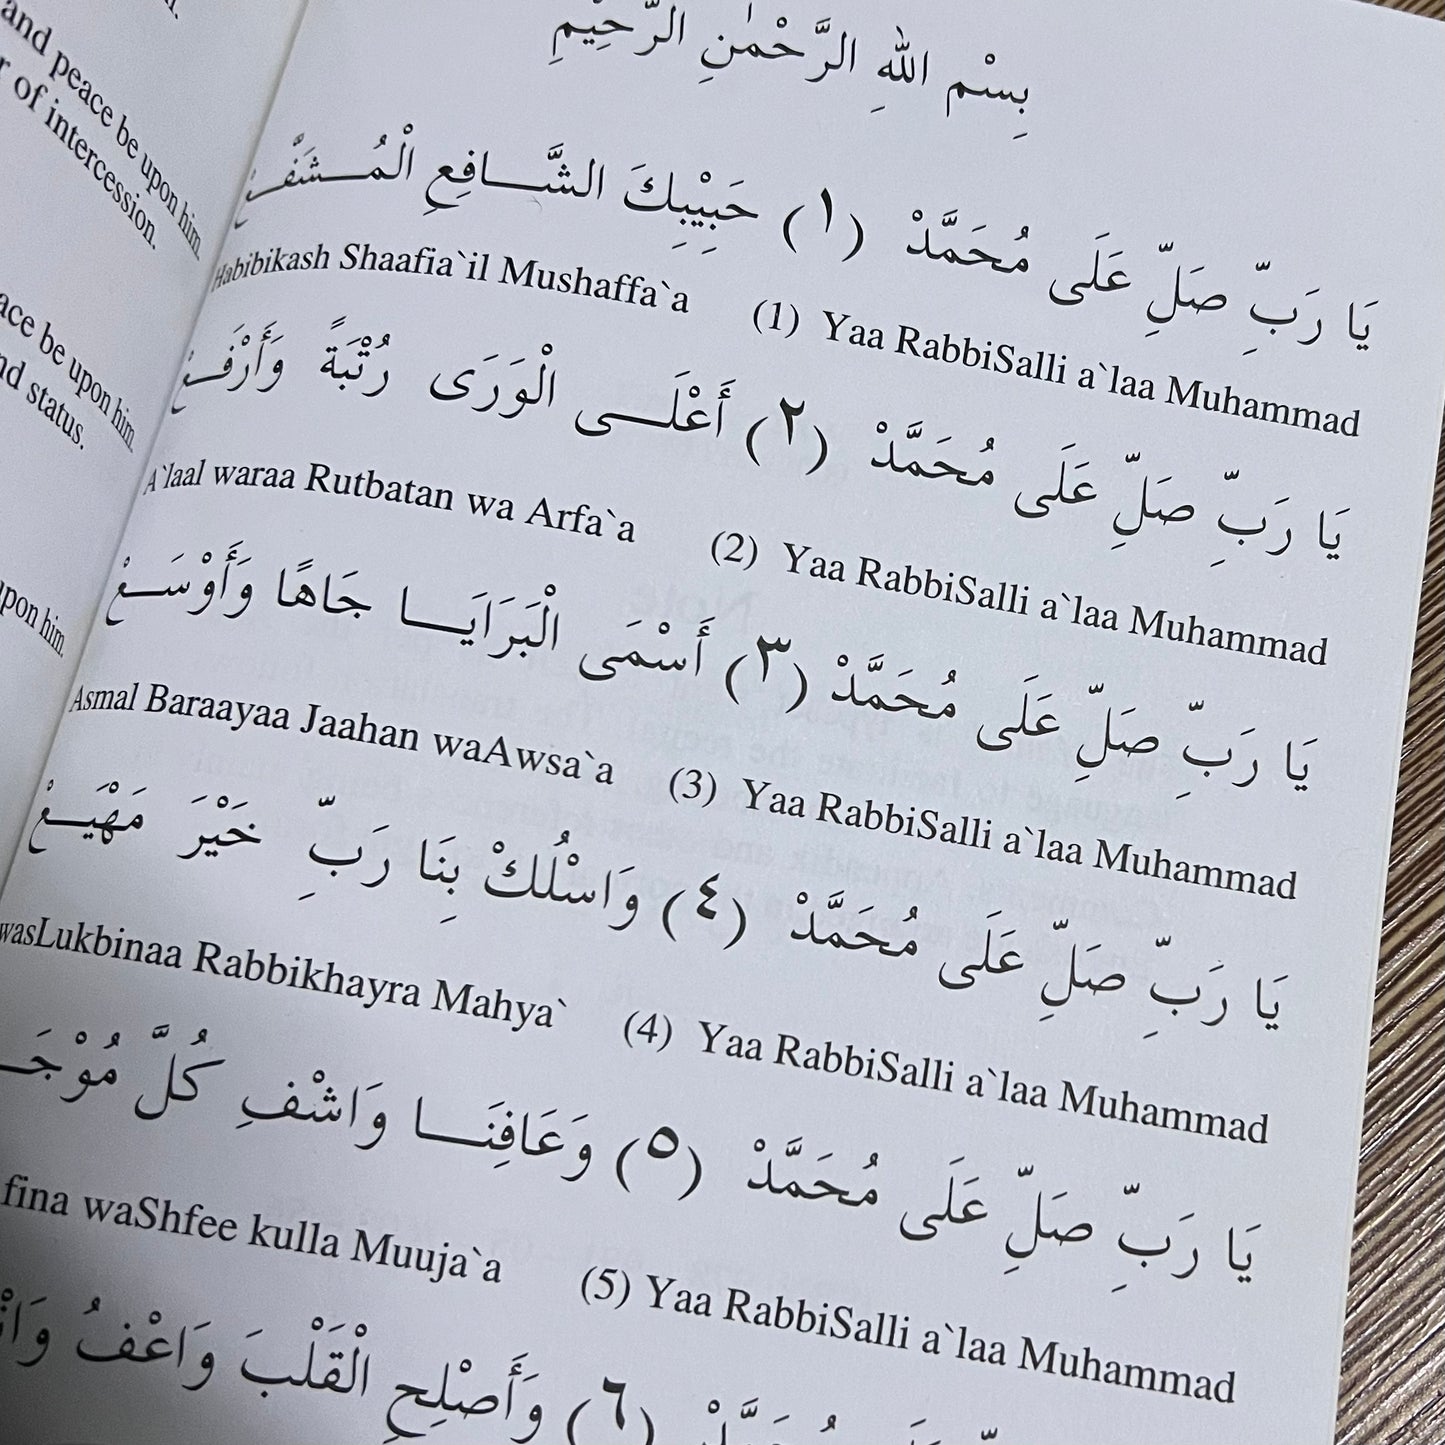 and peace be upon him.
of intercession.
peace be upon him.
status.
upon him.
بِسْمِ اللهِ الرَّحْمٰنِ الرَّحِيْمِ
يَا رَبِّ صَلِّ عَلَى مُحَمَّدْ (١) حَبِيْبِكَ الشَّافِعِ الْمُشَفَّعْ
Habibikash Shaafia`il Mushaffa`a (1) Yaa RabbiSalli a`laa Muhammad
يَا رَبِّ صَلِّ عَلَى مُحَمَّدْ (٢) أَعْلَى الْوَرَى رُتْبَةً وَأَرْفَعْ
A`laal waraa Rutbatan wa Arfa`a (2) Yaa RabbiSalli a`laa Muhammad
يَا رَبِّ صَلِّ عَلَى مُحَمَّدْ (٣) أَسْمَى الْبَرَايَا جَاهًا وَأَوْسَعْ
Asmal Baraayaa Jaahan waAwsa`a (3) Yaa RabbiSalli a`laa Muhammad
يَا رَبِّ صَلِّ عَلَى مُحَمَّدْ (٤) وَاسْلُكْ بِنَا رَبِّ خَيْرَ مَهْيَعْ
wasLukbinaa Rabbikhayra Mahya` (4) Yaa RabbiSalli a`laa Muhammad
يَا رَبِّ صَلِّ عَلَى مُحَمَّدْ (٥) وَعَافِنَا وَاشْفِ كُلَّ
fina waShfee kulla Muuja`a (5) Yaa RabbiSalli a`laa Muhammad
مُحَمَّدْ (٦) وَأَصْلِحِ الْقَلْبَ وَاعْفُ